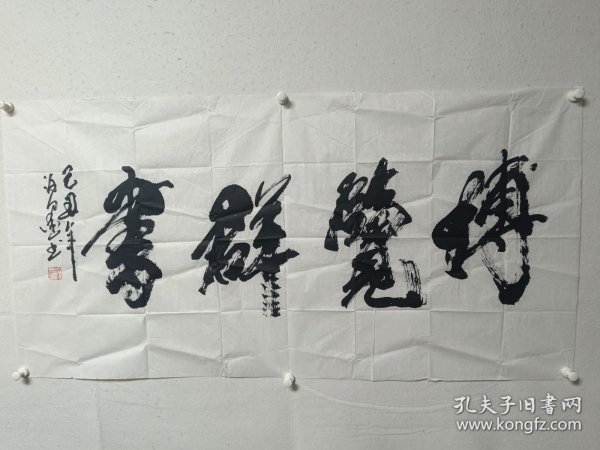 博覽群書
己丑年
书
孔夫子旧書网
www.kongfz.com